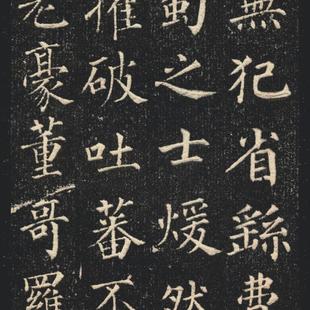 無犯省繇費
之士煖然
摧破吐蕃不
豪董哥羅